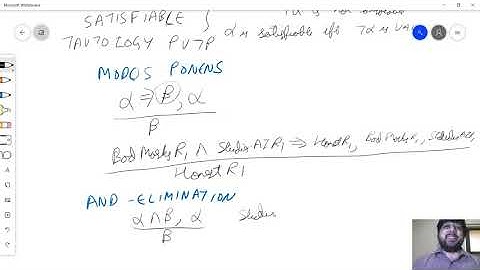 Microsoft Whiteboard
SATISFIABLE
TAUTOLOGY PV¬P α is satisfiable iff ¬α is
MODUS PONENS
α ⇒ β, α
β
Bad Marks R1 ∧ Studies AI R1 ⇒ Honest R1, Bad Marks R1,
Honest R1
AND - ELIMINATION
α ∧ β, α Studies
β